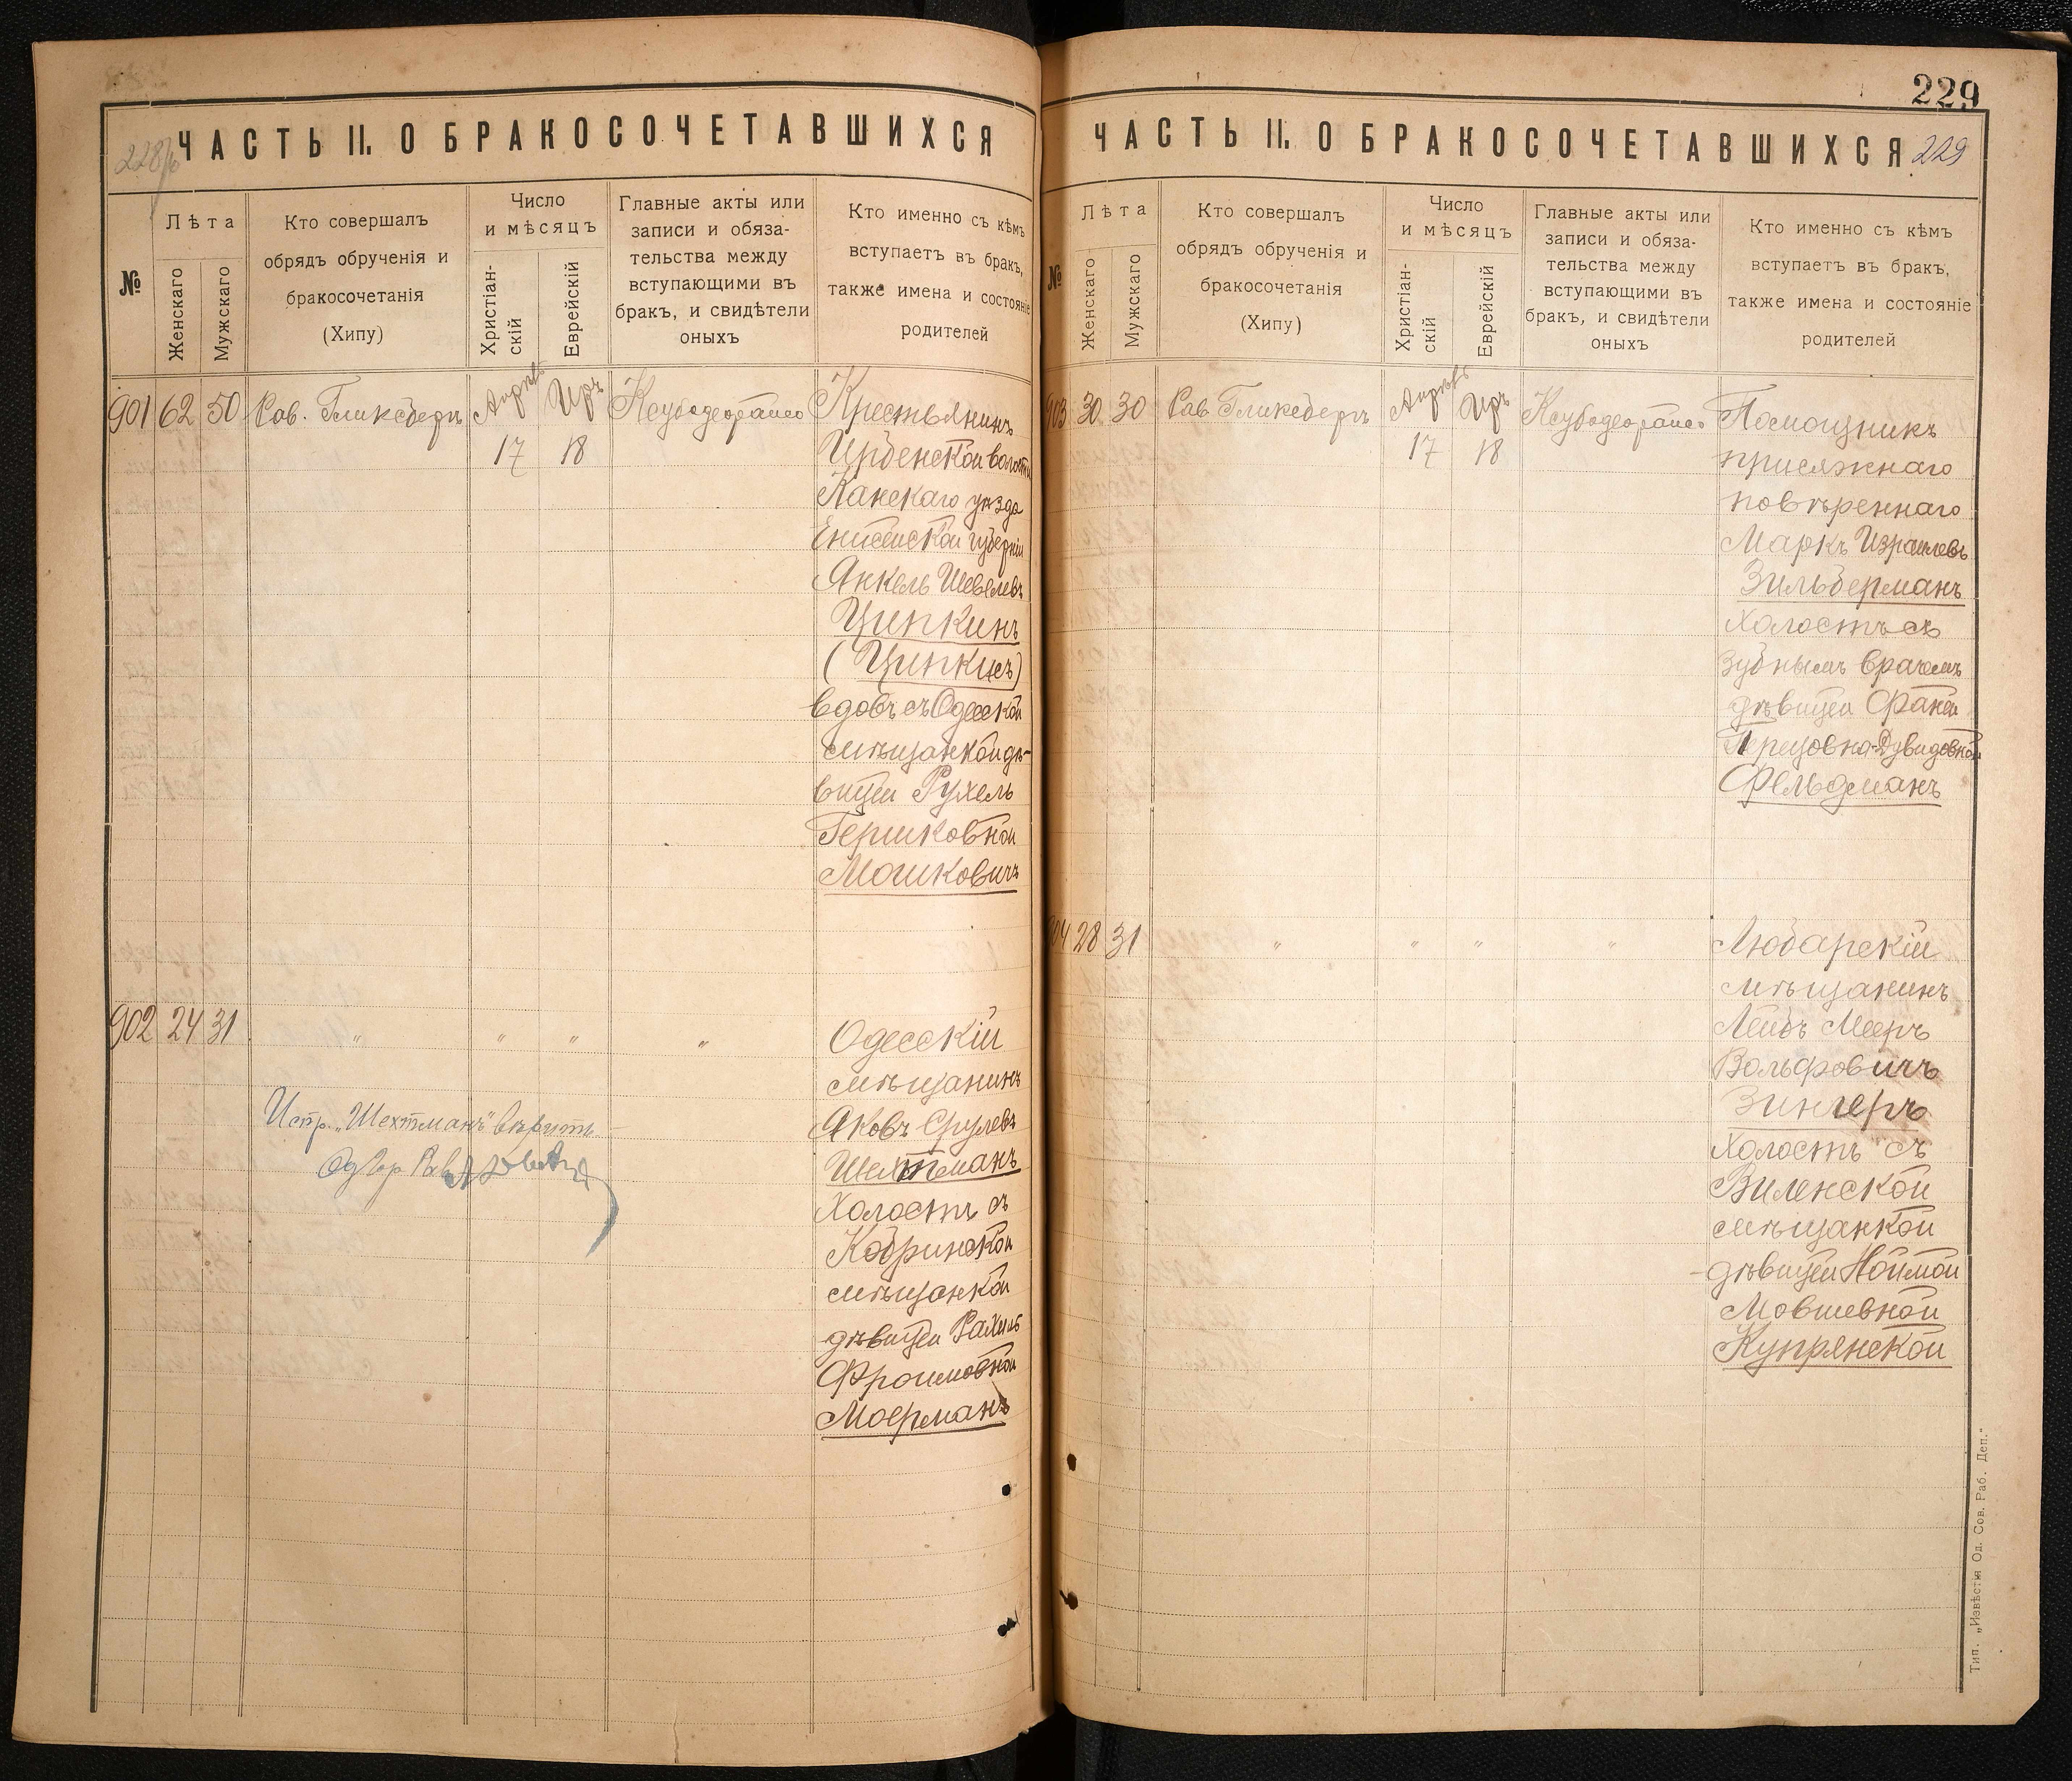 228/б
ЧАСТЬ II. О БРАКОСОЧЕТАВШИХСЯ
№
Лѣта
Женскаго
Мужскаго
Кто совершалъ
обрядъ обрученія и
бракосочетанія
(Хипу)
Число
и мѣсяцъ
Христіан-
скій
Еврейскій
Главные акты или
записи и обяза-
тельства между
вступающими въ
бракъ, и свидѣтели
оныхъ
Кто именно съ кѣмъ
вступаетъ въ бракъ,
также имена и состояніе
родителей
901 62 50 Рав. Гликсбергъ Апрѣль Иръ
17 18
Крестьянинъ
Ирбенской волости
Канскаго уѣзда
Енисейской губерніи
Янкель Шевелевъ
Ципкинъ
(Ципкисъ)
вдовъ съ Одесской
мѣщанкой дѣ-
вицей Рухель
Гершковной
Мошковичъ
902 24 31 " " " "
Одесскій
мѣщанинъ
Яковъ Срулевъ
Шехтманъ
Холостъ съ
Кобринской
мѣщанкой
дѣвицей Рахиль
Фроимовной
Моерманъ
Испр. „Шехтманъ" вѣрить
Од. Гор. Рав.
229
ЧАСТЬ II. О БРАКОСОЧЕТАВШИХСЯ 229
№
Лѣта
Женскаго
Мужскаго
Кто совершалъ
обрядъ обрученія и
бракосочетанія
(Хипу)
Число
и мѣсяцъ
Христіан-
скій
Еврейскій
Главные акты или
записи и обяза-
тельства между
вступающими въ
бракъ, и свидѣтели
оныхъ
Кто именно съ кѣмъ
вступаетъ въ бракъ,
также имена и состояніе
родителей
903 30 30 Рав. Гликсбергъ Апрѣль Иръ
17 18
Помощникъ
присяжнаго
повѣреннаго
Маркъ Израилевъ
Зильберманъ
Холостъ съ
Зубнымъ врачемъ
дѣвицей Фаней
Перецовна-Дувидовной
Фельдманъ
904 28 31 " " " "
Любарскій
мѣщанинъ
Лейбъ Мееръ
Вольфовичъ
Зингеръ
Холостъ съ
Виленской
мѣщанкой
дѣвицей
Мовшевной
Купрянской
Тип. „Извѣстія Од. Сов. Раб. Деп."